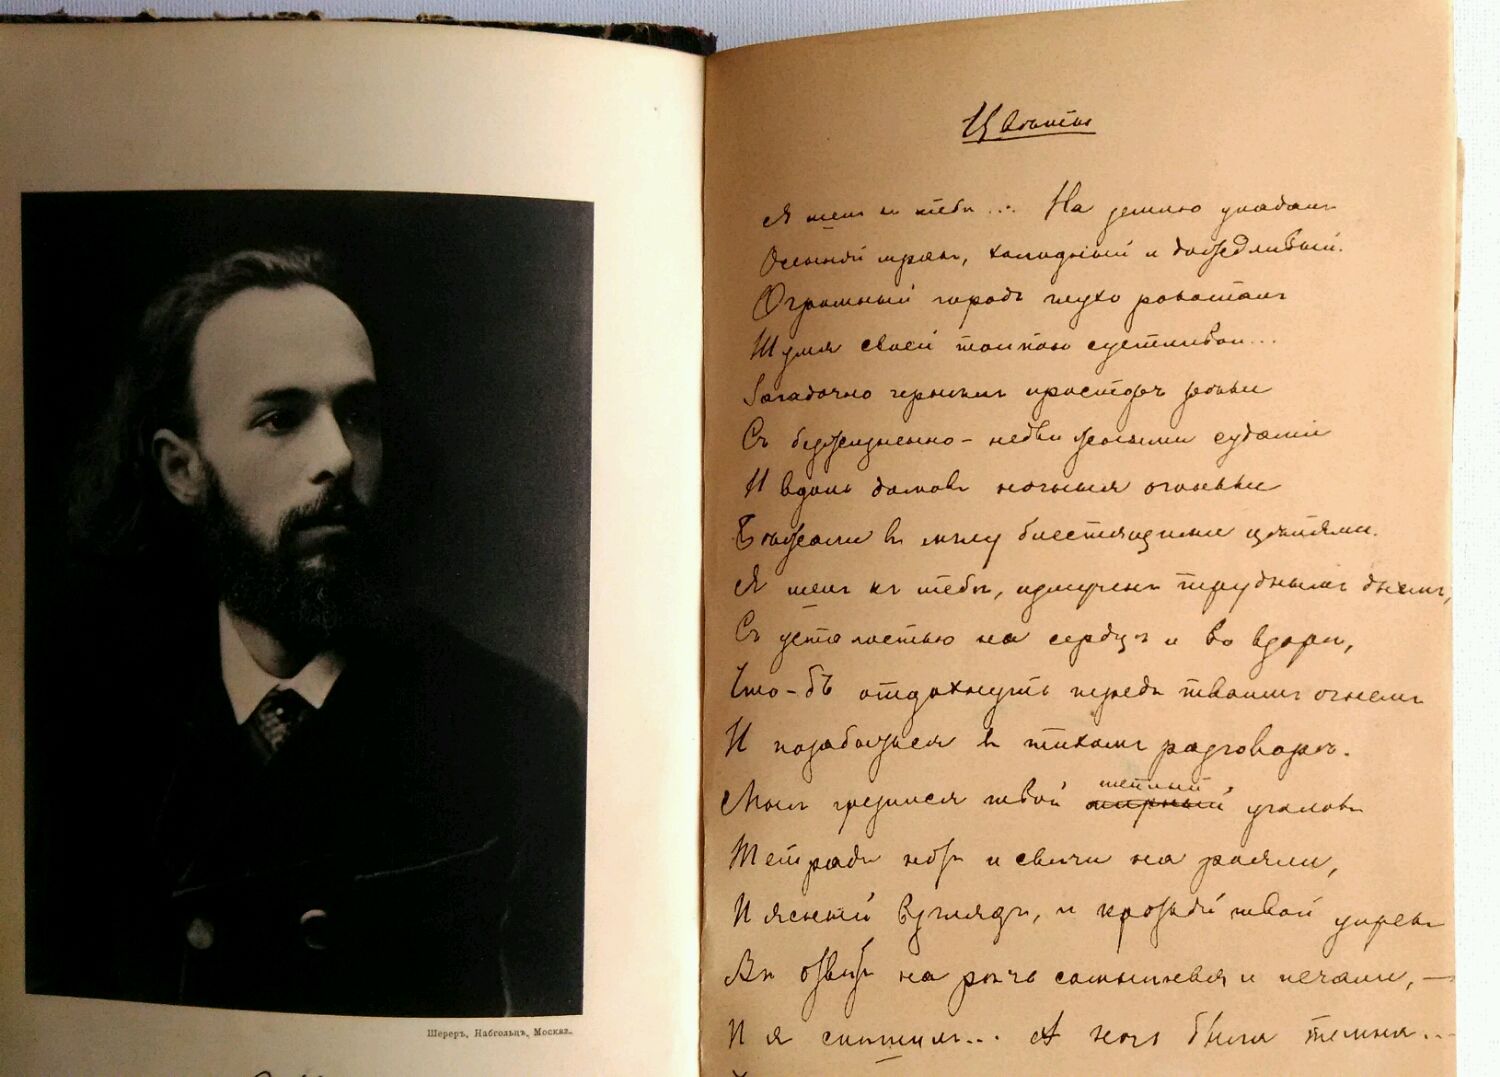 Цвѣты
Я шелъ къ тебѣ... На землю упадалъ
Осенній мракъ, холодный и дождливый.
Огромный городъ глухо рокоталъ
Шумя своей толпою суетливой...
Загадочно чернѣлъ просторъ рѣки
Съ безжизненно-недвижными судами
И вдоль домовъ ночные огоньки
Бѣжали въ мглу блестящими цѣпями.
Я шелъ къ тебѣ, измученъ труднымъ днемъ,
Съ усталостью на сердцѣ и во взорѣ,
Что-бъ отдохнуть передъ твоимъ огнемъ
И позабыться въ тихомъ разговорѣ.
Мнѣ грезился твой теплый мирный уголокъ
Тетради нотъ и свѣчи на роялѣ,
И ясный взглядъ, и кроткій твой упрекъ
Въ отвѣтъ на рѣчь сомнѣнья и печали, —
И я спѣшилъ... А ночь была темна...
Шереръ, Набгольцъ, Москва.